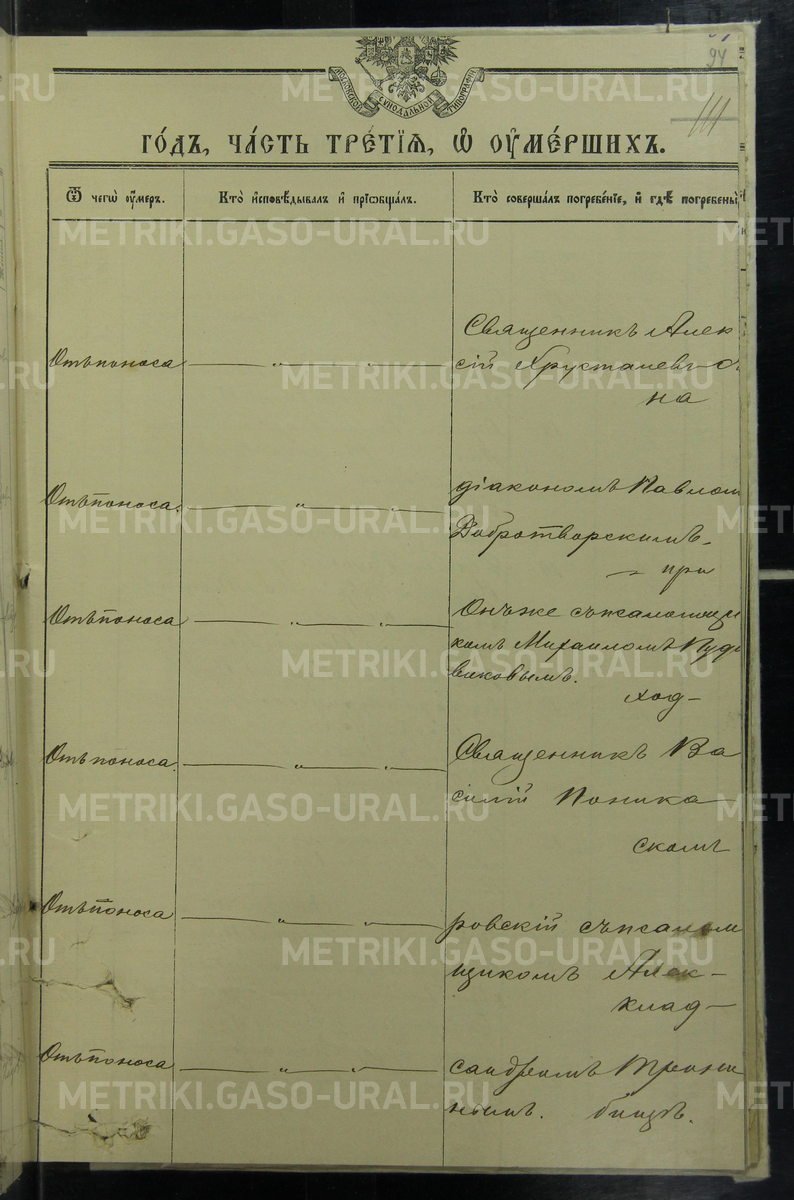 94
111
МОСКОВСКОЙ СѴНОДАЛЬНОЙ ТИПОГРАФІИ
ГО́ДЪ, ЧА́СТЬ ТРЕ́ТІѦ, Ѡ҆ ОУ҆МЕ́РШИХЪ.
Ѿ чегѡ̀ ᲂу҆́меръ.
Кто̀ и҆сповѣ́дывалъ и҆ прїѡбща́лъ.
Кто̀ соверша́лъ погребе́нїе, и҆ гдѣ̀ погребены̀
Отъ поноса
Священникъ Алек
сій Хрусталевъ съ
на
Отъ поноса
діакономъ Павлом
Добротворскимъ.
при
Отъ поноса
Онъ же съ псаломщи
комъ Михаиломъ
виковымъ.
ход-
Отъ поноса
Священникъ Ва
силій Поника
скомъ
Отъ поноса
ровскій съ псалом
щикомъ Алек-
клад-
Отъ поноса
сандромъ Трони
нымъ. бищѣ.
METRIKI.GASO-URAL.RU